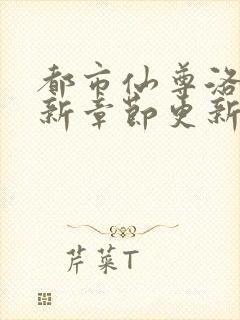 都市仙尊洛
新章節更新
芹菜T